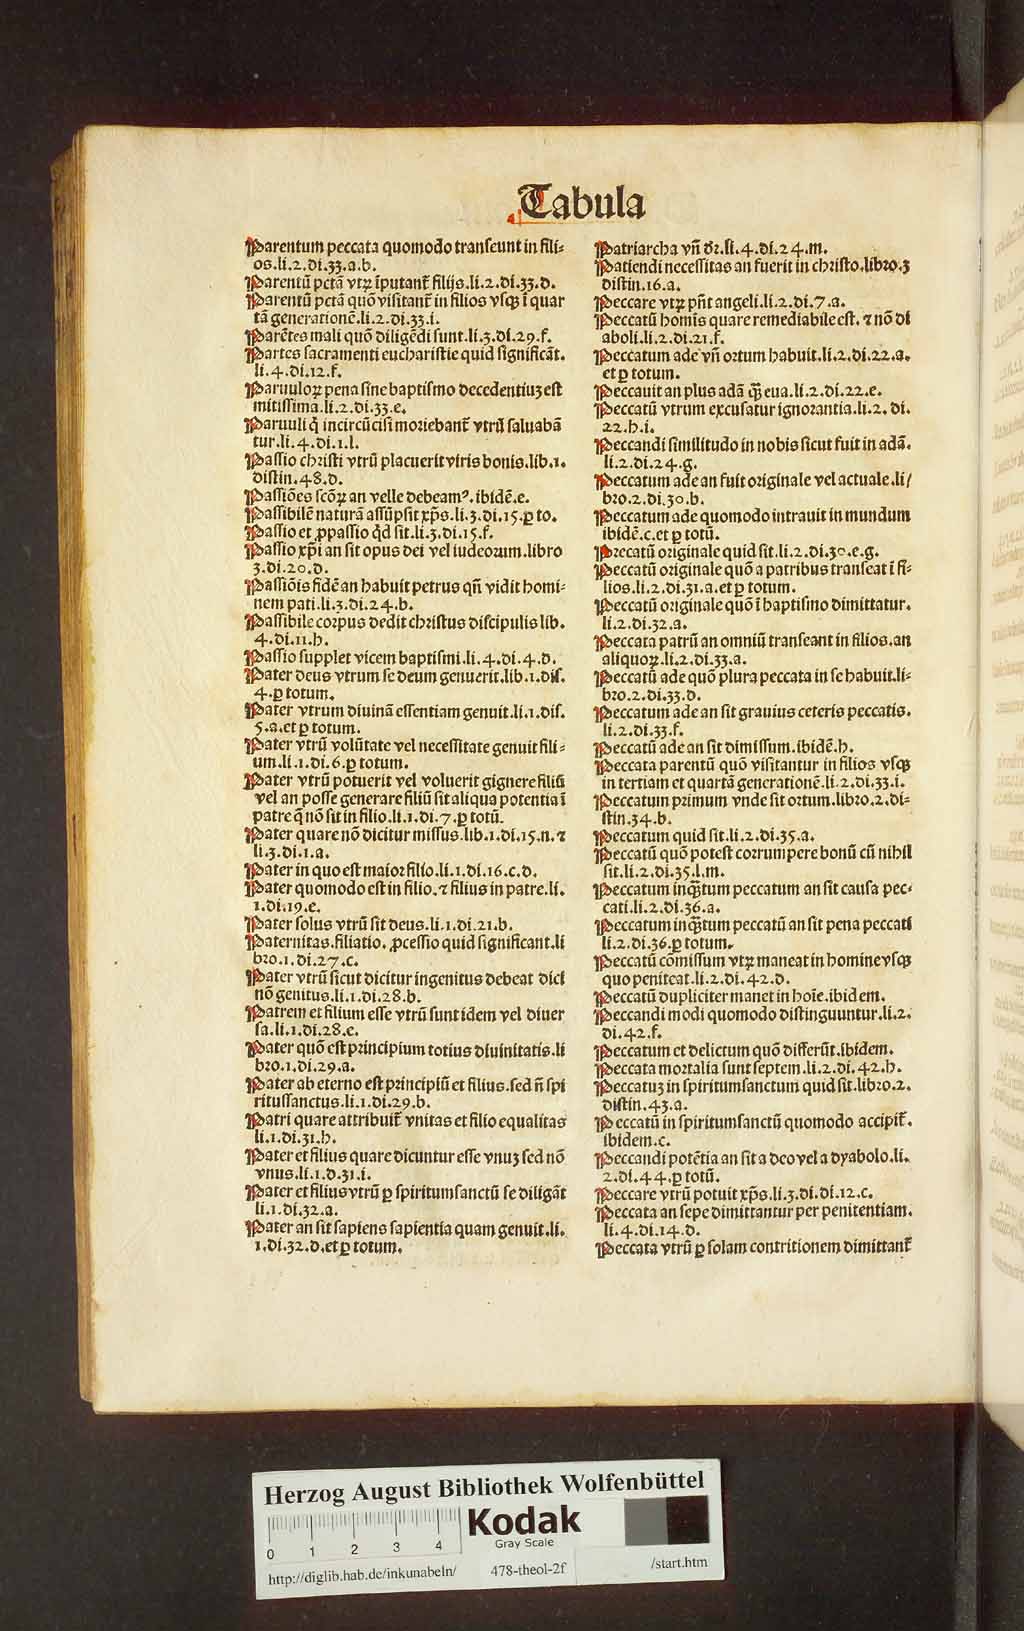 Tabula
Parentum peccata quomodo transeunt in fili⸗
os.li.2.di.33.a.b.
Parentũ pctã vtrꝫ ĩputant᷑ filijs.li.2.di.33.d.
Parentũ pctã quõ visitant᷑ in filios vsqꝫ ĩ quar
tã generationẽ.li.2.di.33.i.
Parẽtes mali quõ diligẽdi sunt.li.3.di.29.f.
Partes sacramenti eucharistie quid significãt.
li.4.di.12.f.
Paruuloꝝ pena sine baptismo decedentiuꝫ est
mitissima.li.2.di.33.e.
Paruuli q̇ incircũcisi moriebant᷑ vtrũ saluabã
tur.li.4.di.1.l.
Passio christi vtrũ placuerit viris bonis.lib.1.
distin.48.d.
Passiões scõꝝ an velle debeamꝰ.ibidẽ.e.
Passibilẽ naturã assũpsit xp̃s.li.3.di.15.ꝑ to.
Passio et ꝓpassio qd̓ sit.li.3.di.15.f.
Passio xp̃i an sit opus dei vel iudeorum.libro
3.di.20.d.
Passiõis fidẽ an habuit petrus qñ vidit homi⸗
nem pati.li.3.di.24.b.
Passibile corpus dedit christus discipulis lib.
4.di.11.h.
Passio supplet vicem baptismi.li.4.di.4.d.
Pater deus vtrum se deum genuerit.lib.1.dis.
4.ꝑ totum.
Pater vtrum diuinã essentiam genuit.li.1.dis.
5.a.et ꝑ totum.
Pater vtrũ volũtate vel necessitate genuit fili⸗
um.li.1.di.6.ꝑ totum.
Pater vtrũ potuerit vel voluerit gignere filiũ
vel an posse generare filiũ sit aliqua potentia ĩ
patre q̃ nõ sit in filio.li.1.di.7.ꝑ totũ.
Pater quare nõ dicitur missus.lib.1.di.15.n.⁊
li.3.di.1.a.
Pater in quo est maior filio.li.1.di.16.c.d.
Pater quomodo est in filio.⁊ filius in patre.li.
1.di.19.e.
Pater solus vtrũ sit deus.li.1.di.21.b.
Paternitas.filiatio.ꝓcessio quid significant.li
bro.1.di.27.c.
Pater vtrũ sicut dicitur ingenitus debeat dici
nõ genitus.li.1.di.28.b.
Patrem et filium esse vtrũ sunt idem vel diuer
sa.li.1.di.28.e.
Pater quõ est principium totius diuinitatis.li
bro.1.di.29.a.
Pater ab eterno est principiũ et filius.sed ñ spi
ritussanctus.li.1.di.29.b.
Patri quare attribuit᷑ vnitas et filio equalitas
li.1.di.31.h.
Pater et filius quare dicuntur esse vnuꝫ sed nõ
vnus.li.1.d.31.i.
Pater et filius vtrũ ꝑ spiritumsanctũ se diligãt
li.1.di.32.a.
Pater an sit sapiens sapientia quam genuit.li.
1.di.32.d.et ꝑ totum.
Patriarcha vñ dr̃.li.4.di.24.m.
Patiendi necessitas an fuerit in christo.libro.3
distin.16.a.
Peccare vtrꝫ pñt angeli.li.2.di.7.a.
Peccatũ homĩs quare remediabile est.⁊ nõ di
aboli.li.2.di.21.f.
Peccatum ade vñ ortum habuit.li.2.di.22.a.
et ꝑ totum.
Peccauit an plus adã q̃ꝫ eua.li.2.di.22.e.
Peccatũ vtrum excusatur ignorantia.li.2.di.
22.h.i.
Peccandi similitudo in nobis sicut fuit in adã.
li.2.di.24.g.
Peccatum ade an fuit originale vel actuale.li/
bro.2.di.30.b.
Peccatum ade quomodo intrauit in mundum
ibidẽ.c.et ꝑ totũ.
Precatũ originale quid sit.li.2.di.30.e.g.
Peccatũ originale quõ a patribus transeat ĩ fi⸗
lios.li.2.di.31.a.et ꝑ totum.
Peccatũ originale quõ ĩ baptismo dimittatur.
li.2.di.32.a.
Peccata patrũ an omniũ transeant in filios.an
aliquoꝝ.li.2.di.33.a.
Peccatũ ade quõ plura peccata in se habuit.li⸗
bro.2.di.33.d.
Peccatum ade an sit grauius ceteris peccatis.
li.2.di.33.f.
Peccatũ ade an sit dimissum.ibidẽ.h.
Peccata parentũ quõ visitantur in filios vsqꝫ
in tertiam et quartã generationẽ.li.2.di.33.i.
Peccatum primum vnde sit ortum.libro.2.di⸗
stin.34.b.
Peccatum quid sit.li.2.di.35.a.
Peccatũ quõ potest corrumpere bonũ cũ nihil
sit.li.2.di.35.l.m.
Peccatum inq̃ꝫtum peccatum an sit causa pec⸗
cati.li.2.di.36.a.
Peccatum inq̃ꝫtum peccatũ an sit pena peccati
li.2.di.36.ꝑ totum.
Peccatũ cõmissum vtrꝫ maneat in homine vsqꝫ
quo peniteat.li.2.di.42.d.
Peccatũ dupliciter manet in hoĩe.ibidem.
Peccandi modi quomodo distinguuntur.li.2.
di.42.f.
Peccatum et delictum quõ differũt.ibidem.
Peccata mortalia sunt septem.li.2.di.42.h.
Peccatuꝫ in spiritumsanctum quid sit.libro.2.
distin.43.a.
Peccatũ in spiritumsanctũ quomodo accipit᷑.
ibidem.c.
Peccandi potẽtia an sit a deo vel a dyabolo.li.
2.di.44.ꝑ totũ.
Peccare vtrũ potuit xp̃s.li.3.di.di.12.c.
Peccata an sepe dimittantur per penitentiam.
li.4.di.14.d.
Peccata vtrũ ꝑ solam contritionem dimittant᷑
Herzog August Bibliothek Wolfenbüttel
0 1 2 3 4
Kodak
Gray Scale
http://diglib.hab.de/inkunabeln/ 478-theol-2f /start.htm